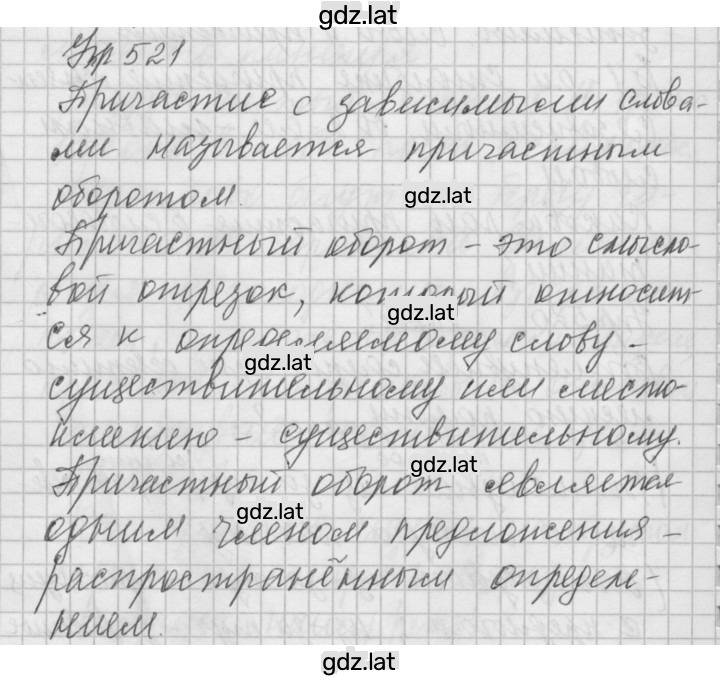 gdz.lat
Упр 521
Причастие с зависимыми слова-
ми называется причастным
оборотом.
gdz.lat
Причастный оборот – это смысло-
вой отрезок, который относит-
gdz.lat
ся к определяемому слову –
gdz.lat
существительному или место-
имению – существительному.
gdz.lat
Причастный оборот является
gdz.lat
одним членом предложения –
распространённым определе-
нием.
gdz.lat